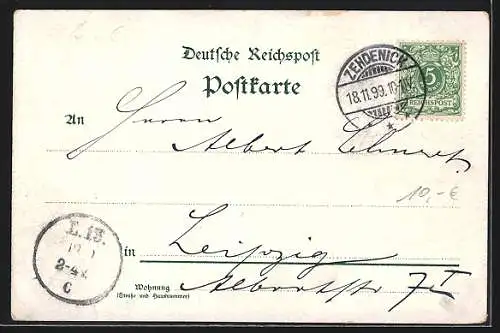 Deutsche Reichspost
Postkarte
ZEHDENICK
18.11.99.10-11V.
5
REICHSPOST
An Herrn
Albert
10,- €
L. 13.
2-4
C
in Leipzig
Wohnung Albertstr 7 I
(Straße und Hausnummer)